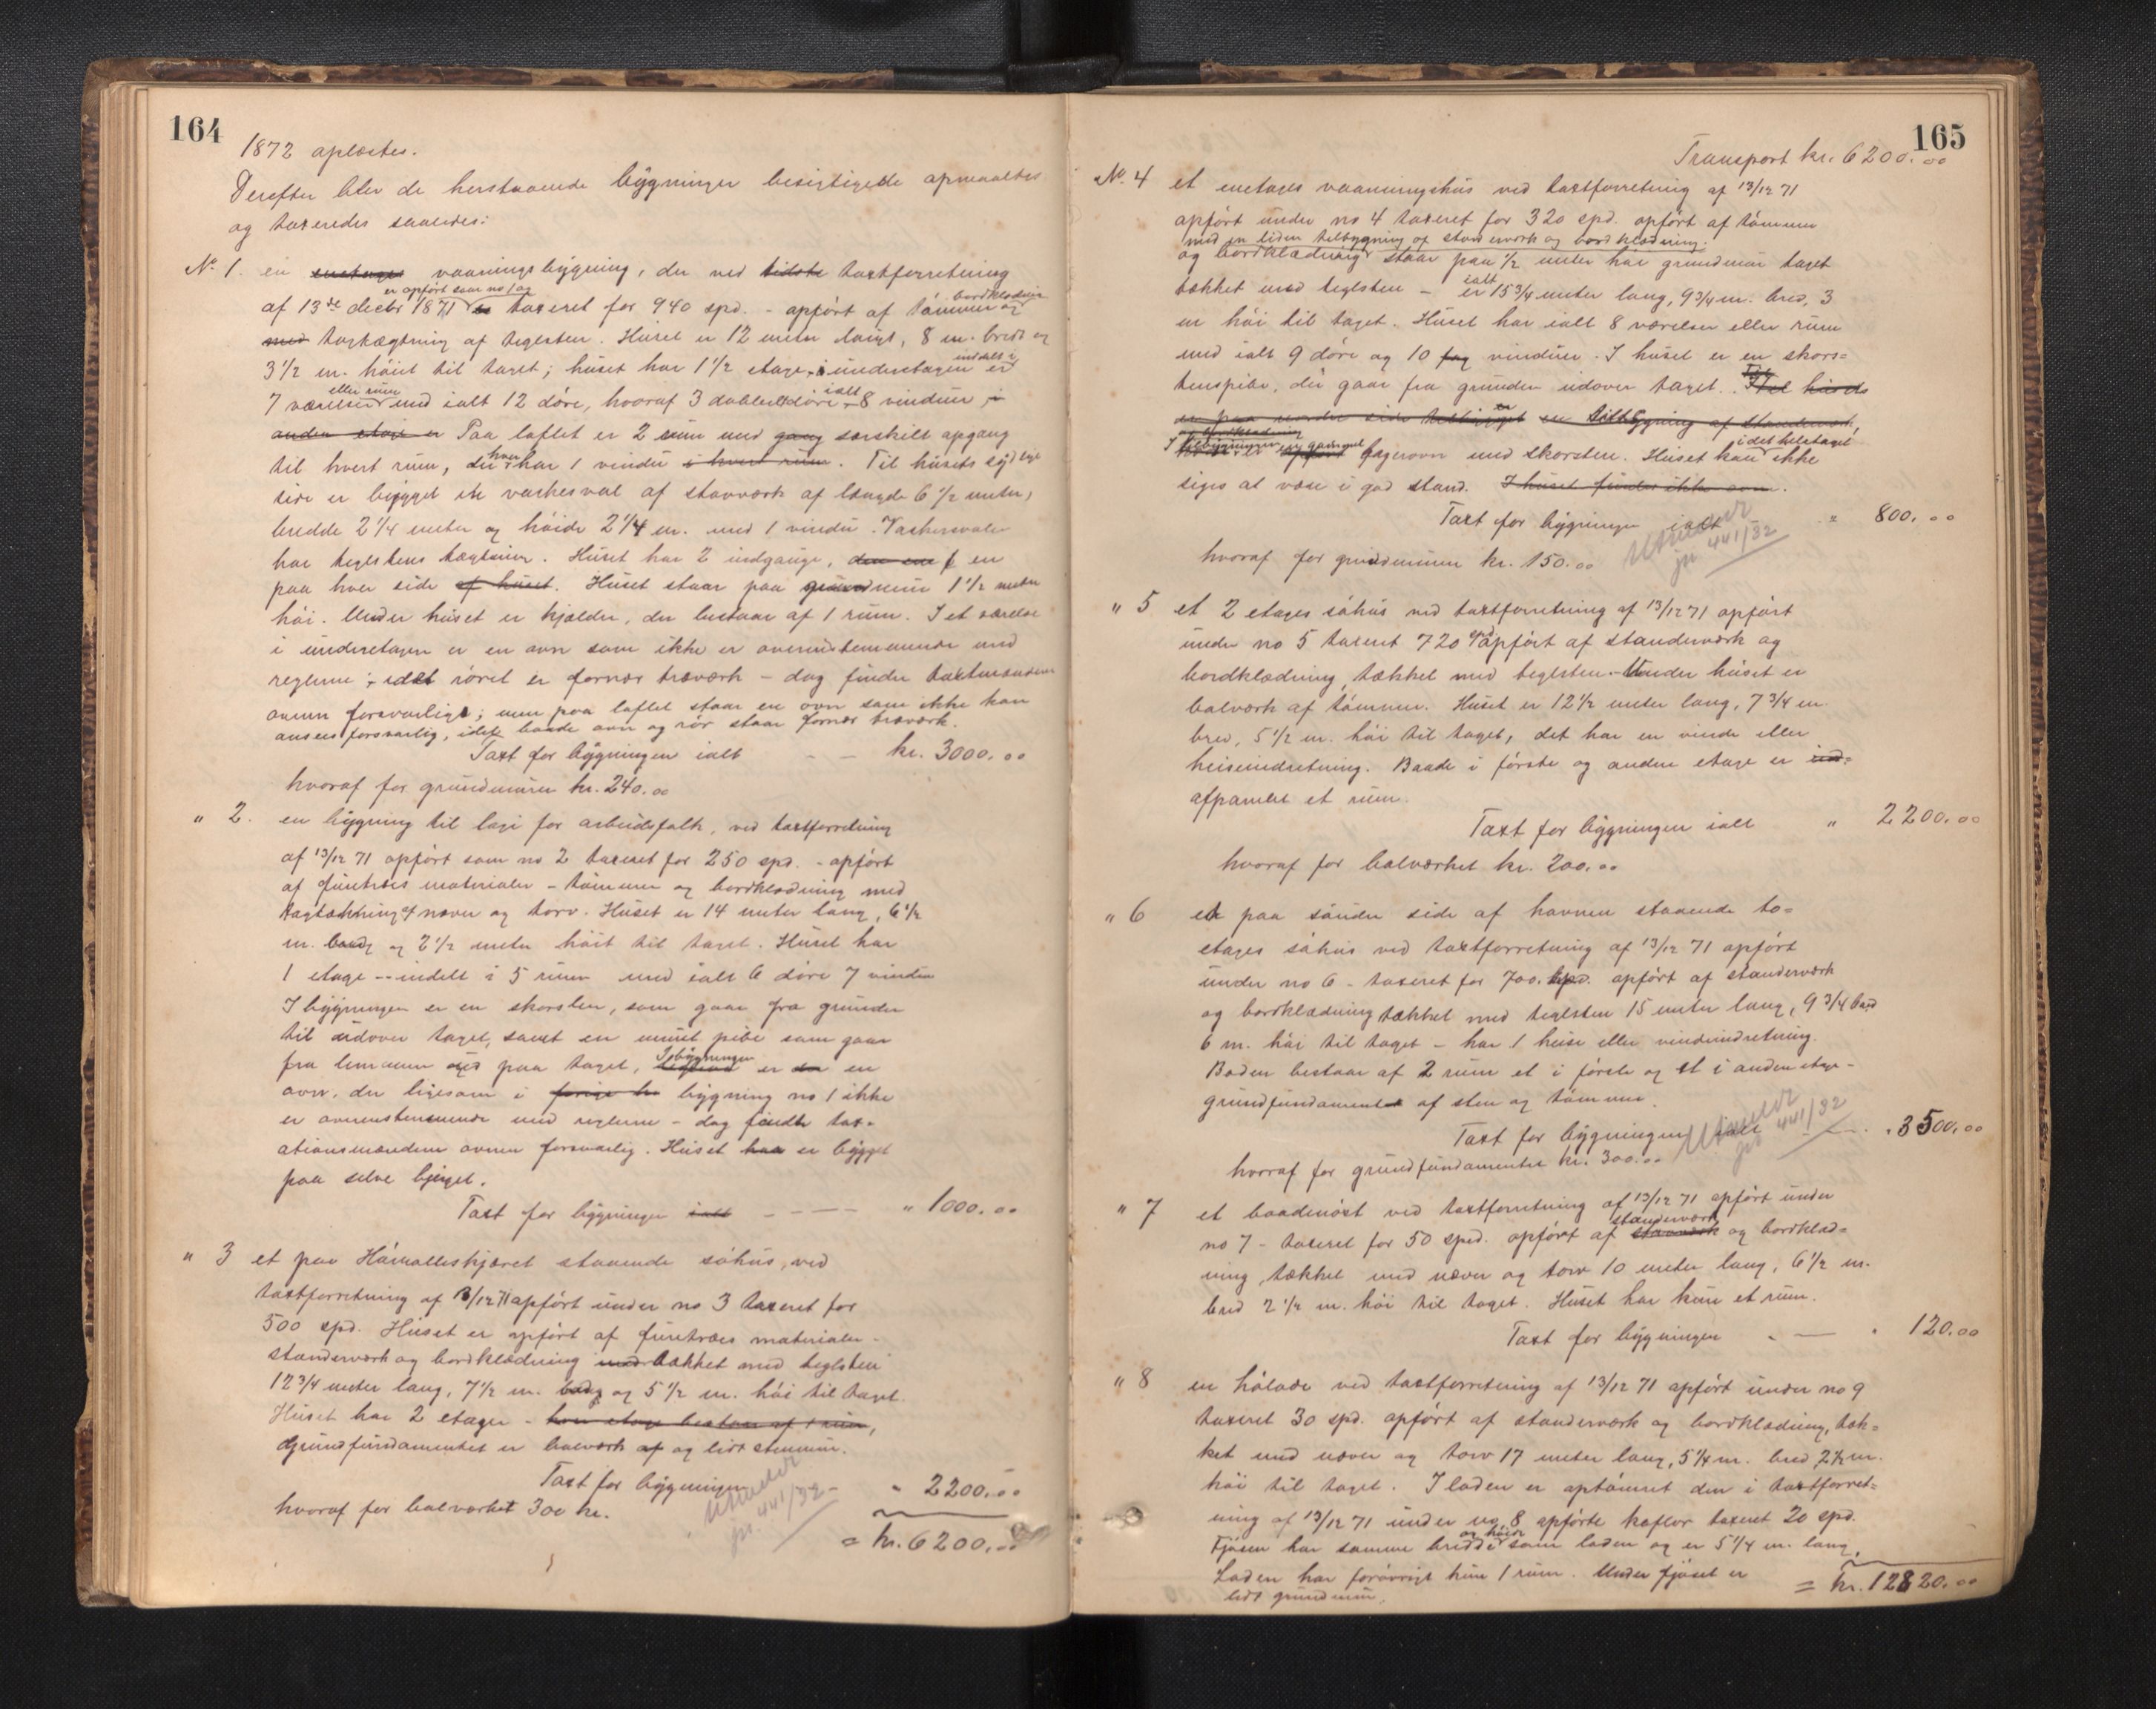 164
1872 oplæstes.
Derefter blev de herstaaende bygninger besigtigede opmaaltes
og taxeredes saaledes:
No. 1. en enetages vaaningsbygning, der ved sidste taxtforretning
er opført som no 1 og bordklædning
af 13de decbr 1871 er taxeret for 940 spd. - opført af tømmer og
med tagtægtning af teglsten. Huset er 12 meter langt, 8 m. bredt og
3 1/2 m. höit til taget; huset har 1 1/2 etage, i underetagen er inddelt i
eller rum ialt
7 værelser med ialt 12 döre, hvoraf 3 dobbeltdöre - 8 vinduer, i
anden etage er Paa loftet er 2 rum med gang særskilt opgang
til hvert rum, der hver har 1 vindu i hvert rum. Til husets sydlige
side er bygget en vaskesval af stavværk af længde 6 1/2 meter,
bredde 2 1/4 meter og höide 2 1/4 m. med 1 vindu. Vaskesvalen
har teglstens tægtning. Huset har 2 indgange, den ene f en
paa hver side af huset. Huset staar paa grundmur 1 1/2 meter
höi. Under huset er kjælder, der bestaar af 1 rum. I et værelse
i underetagen er en ovn som ikke er overensstemmende med
reglerne; idet röret er fornær træværk - dog finder taxtmændene
ovnen forsvarlig; men paa loftet staar en ovn som ikke kan
ansees forsvarlig, idet baade ovn og rör staar fornær træværk.
Taxt for bygningen ialt - - kr. 3000.00
hvoraf for grundmuren kr. 240.00
" 2. en bygning til logi for arbeidsfolk, ved taxtforretning
af 13/12 71 opfört som no 2 taxeret for 250 spd. - opfört
af furutræs materialer - tömmer og bordklædning med
tagtækning af næver og torv. Huset er 14 meter lang, 6 1/2
m. bredt og 2 1/2 meter höit til taget. Huset har
1 etage -- indelt i 5 rum med ialt 6 döre 7 vinduer
I bygningen er en skorsten, som gaar fra grunden
til udover taget, samt en muret pibe som gaar
fra lemmen ud paa taget, I bygningen er en en
ovn, der ligesom i forrige hu bygning no 1 ikke
er overenstemmende med reglerne - dog findte tax-
ationsmændene ovnen forsvarlig. Huset har er bygget
paa selve bjerget.
Taxt for bygningen ialt - - - - " 1000.00
" 3 et paa Håmalleskjæret staaende söhus, ved
taxtforretning af 13/12 71 opfört under no 3 taxeret for
500 spd. Huset er opfört af furutræes materialer -
standerværk og bordklædning med tækket med teglsten
12 3/4 meter lang, 7 1/2 m. bred og 5 1/2 m. höi til taget.
Huset har 2 etager - hver etage bestaar af 1 rum,
Grundfundamentet er bolværk af og lidt stenmur.
Taxt for bygningen - " 2200.00
hvoraf for bolværket 300 kr.
Utmeldt
jr. 441/32
= kr. 6200.00
165
Transport kr. 6200.00
No. 4 et enetages vaaningshus ved taxtforretning af 13/12 71
opfört under no 4 taxeret for 320 spd. opfört af tömmer
med en liden tilbygning af standerværk og bordklædning.
og bordklædning staar paa 1/2 meter höi grundmur taget
tækket med teglsten - er ialt 15 3/4 meter lang, 9 3/4 m. bred, 3
m höi til taget. Huset har ialt 8 værelser eller rum
med ialt 9 döre og 10 fag vinduer. I huset er en skors=
tenspibe, der gaar fra grunden udover taget. Ved huset
er paa nordre side tilbygget en tilbygning af standerværk,
og bordklædning
I tilbygningen er gammel bagerovn med skorsten. Huset kan i det heletaget ikke
siges at være i god stand. I huset findes ikke ovn.
Taxt for bygningen ialt " 800.00
hvoraf for grundmuren kr. 150.00
Utmeldt
jr 441/32
" 5 et 2 etages söhus ved taxtforretning af 13/12 71 opfört
under no 5 taxeret 720 spd opfört af standerværk og
bordklædning, tækket med teglsten. - Under huset er
bolværk af tömmer. Huset er 12 1/2 meter lang, 7 3/4 m.
bred, 5 1/2 m. höi til taget, det har en vinde eller
heiseindretning. Baade i förste og anden etage er ind=
afpanelet et rum.
Taxt for bygningen ialt " 2200.00
hvoraf for bolværket kr. 200.00
" 6 et paa söndre side af havnen staaende to=
etages söhus ved taxtforretning af 13/12 71 opfört
under no 6 - taxeret for 700 spd. opfört af standerværk
og bordklædning tækket med teglsten 15 meter lang, 9 3/4 bred
6 m. höi til taget - har 1 heise eller vindeindretning.
Boden bestaar af 2 rum et i förste og et i anden etage -
grundfundamentet af sten og tömmer.
Taxt for bygningen ialt " 3500.00
hvoraf for grundfundamentet kr. 300.00
Utmeldt
jr 441/32
" 7 et baadenöst ved taxtforretning af 13/12 71 opfört under
standerværk
no 7 - taxeret for 50 spd. opfört af stavværk og bordklæd=
ning, tækket med næver og torv 10 meter lang, 6 1/2 m.
bred 2 1/2 m. höi til taget. Huset har kun et rum.
Taxt for bygningen - — " 120.00
" 8 en hölade ved taxtforretning af 13/12 71 opfört under no 9
taxeret 30 spd. opfört af standerværk og bordklædning, tæk=
ket med næver og torv 17 meter lang, 5 1/4 m. bred 2 1/2 m.
höi til taget. I laden er optömret den i taxtforret=
ning af 13/12 71 under no 8 opförte koflor taxeret 20 spd.
Fjösen har samme bredde og höide som laden og er 5 1/4 m. lang.
Laden har forövrigt kun 1 rum. Under fjöset er
lidt grundmur.
= kr. 12820.00